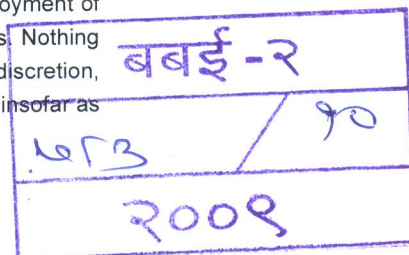 oyment of
s. Nothing
discretion,
insofar as
बबई - २
/ १०
२००९